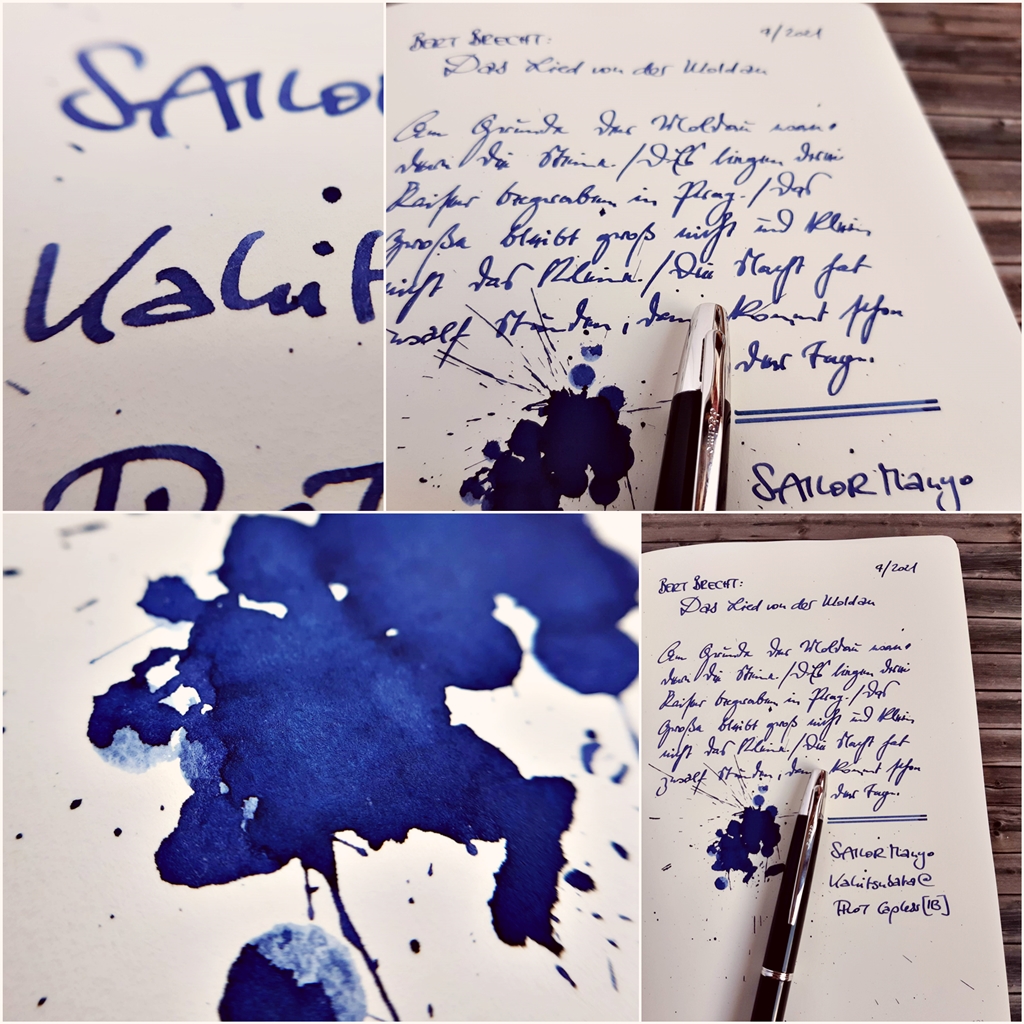 SAILO
BERT BRECHT:
4/2021
Das Lied von der Moldau
Am Grunde der Moldau wan-
dern die Steine. / Es liegen drei
Kaiser begraben in Prag. / Das
Große bleibt groß nicht und klein
nicht das Kleine. / Die Nacht hat
zwölf Stunden, dann kommt schon
der Tag.
SAILOR Manyo
BERT BRECHT:
4/2021
Das Lied von der Moldau
Am Grunde der Moldau wan-
dern die Steine. / Es liegen drei
Kaiser begraben in Prag. / Das
Große bleibt groß nicht und klein
nicht das Kleine. / Die Nacht hat
zwölf Stunden, dann kommt schon
der Tag.
SAILOR Manyo
Kakitsubata@
PILOT Capless